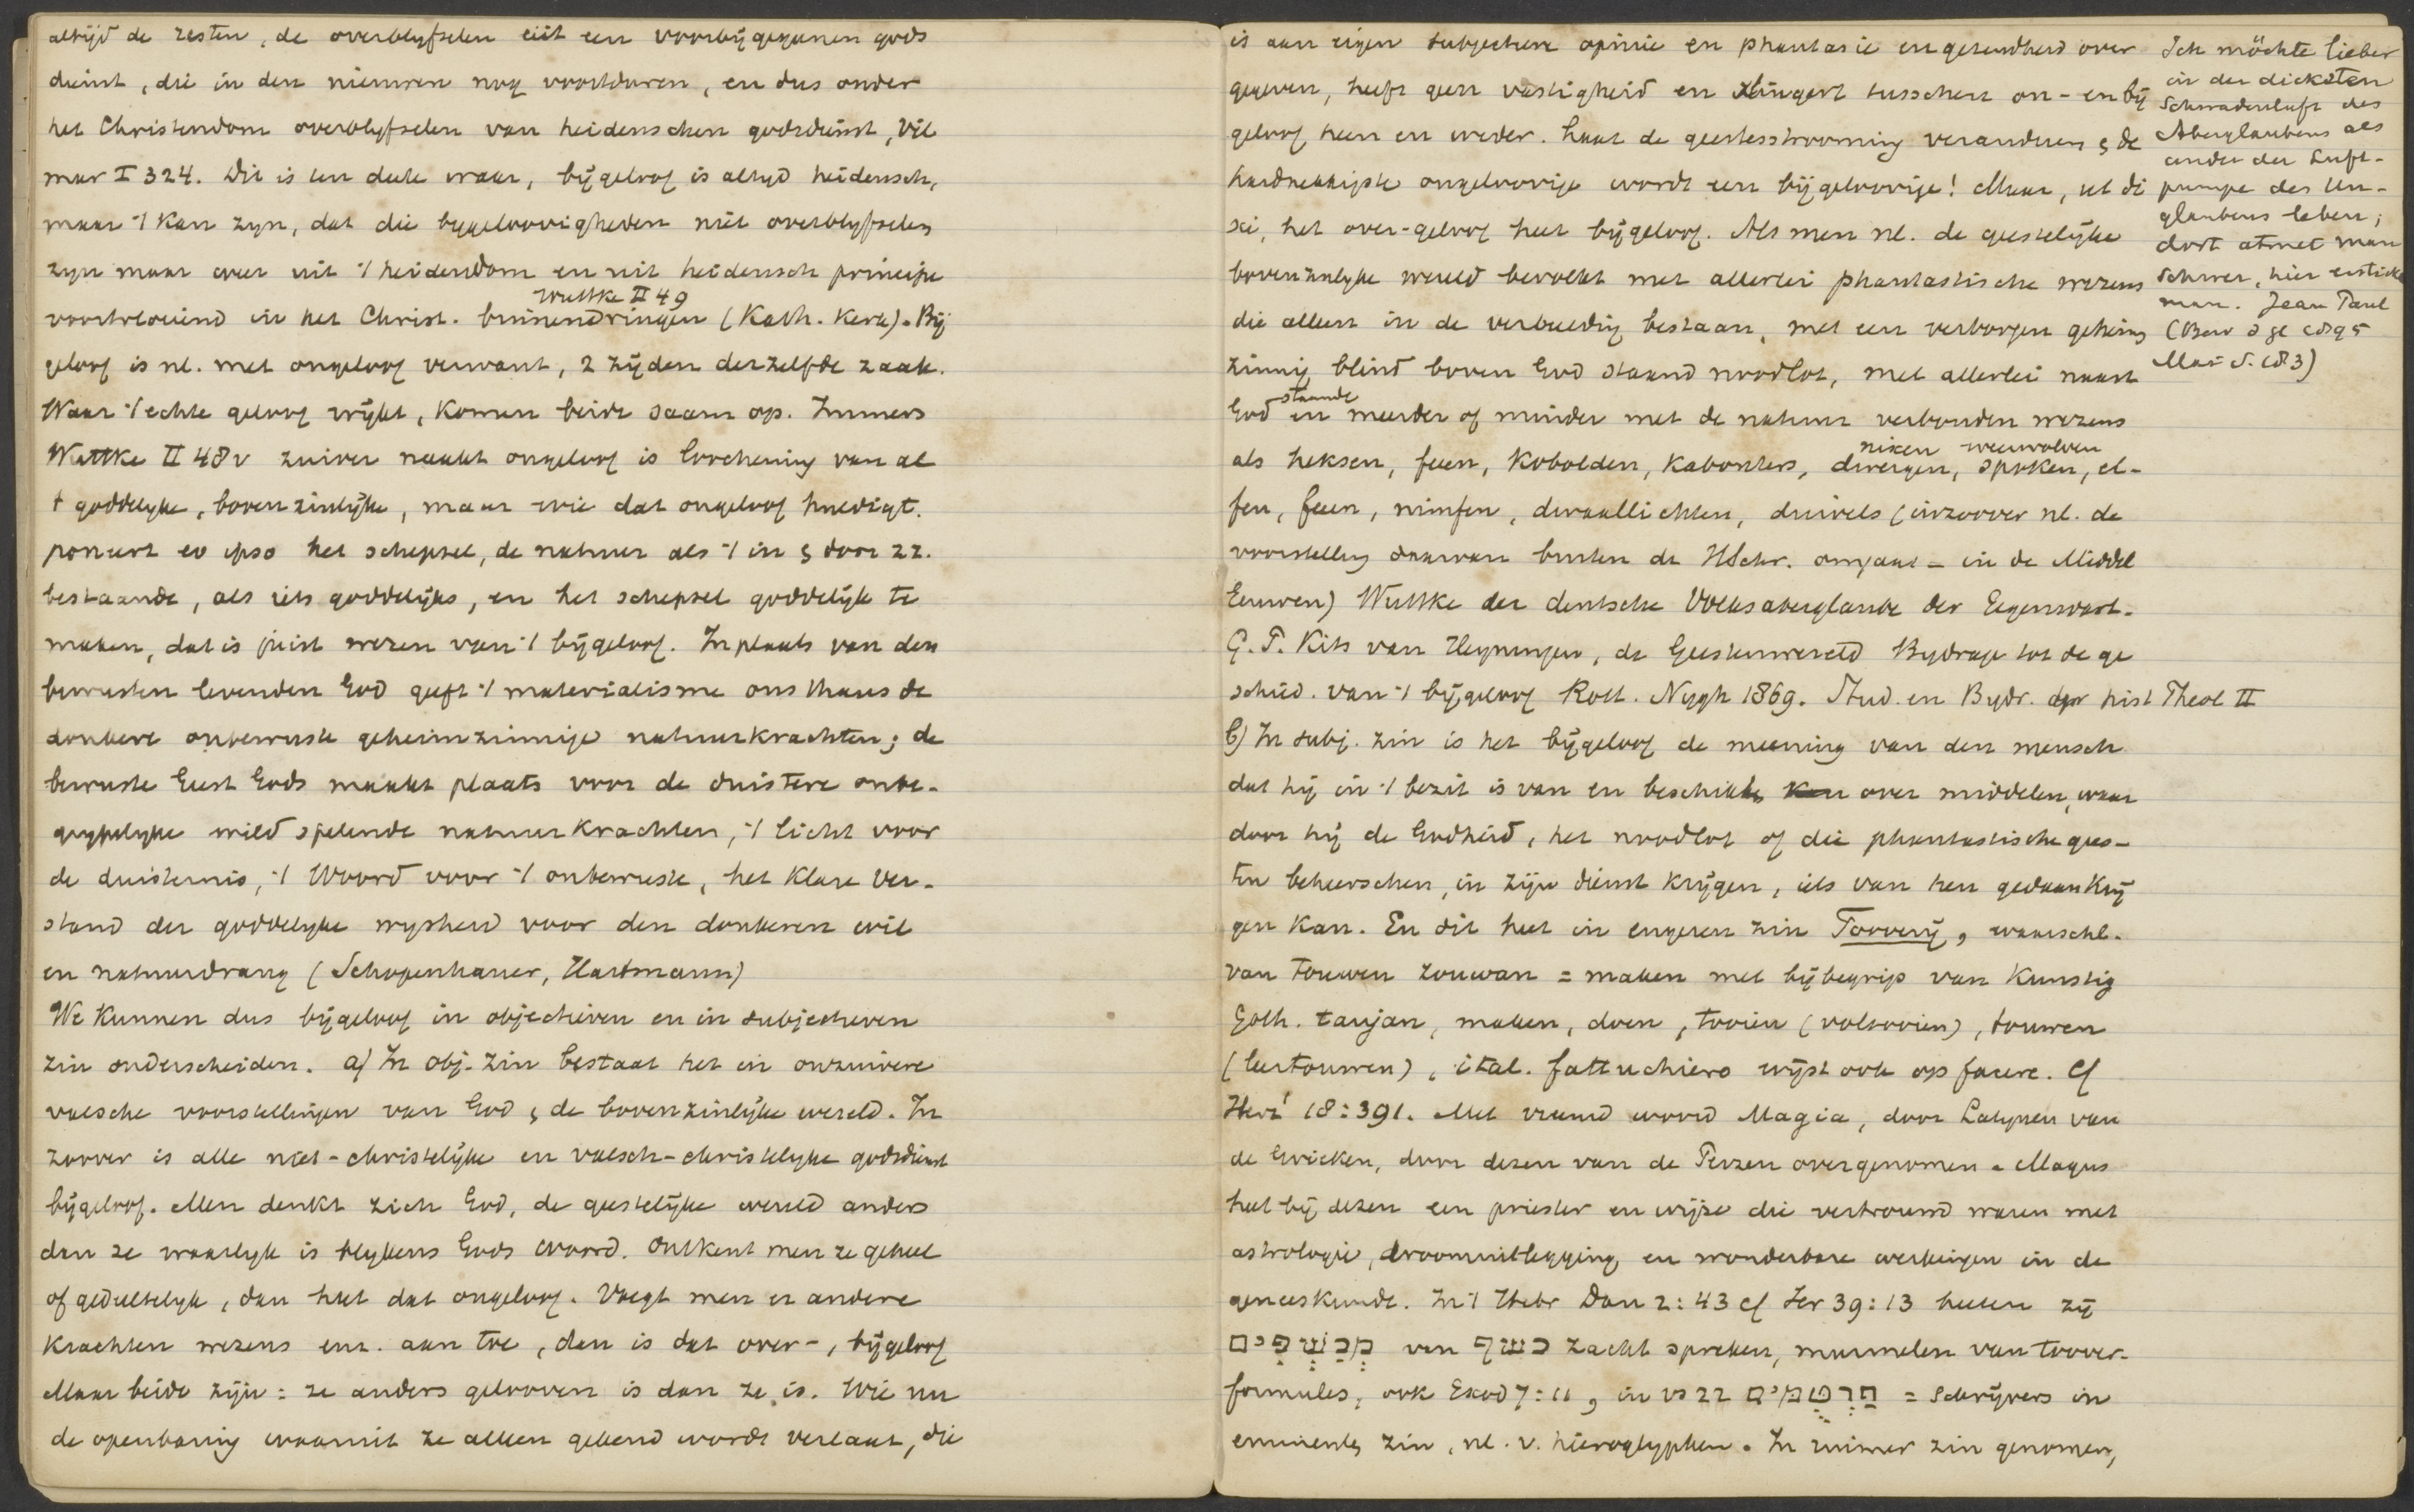 altijd de resten, de overblyfselen uit een voorbijgeganen gods
dienst, die in den nieuwen nog voortduren, en dus onder
het Christendom overblyfselen van heidenschen godsdienst, Vil
mar I 324. Dit is ten deele waar, bijgeloof is altyd heidensch,
maar 't kan zyn, dat die bygeloovigheden niet overblyfselen
zyn maar weer uit 't heidendom en uit heidensch principe
Wuttke II 49
voortvloeiend in het Christ. binnendringen (Kath. Kerk). Bij
geloof is nl. met ongeloof verwant, 2 zijden derzelfde zaak.
Waar 't echte geloof wijkt, komen beide saam op. Immers
Wuttke II 48v zuiver naakt ongeloof is loochening van al
't goddelyke, bovenzinlijke, maar wie dat ongeloof huldigt.
poneert eo ipso het schepsel, de natuur als 't in & door zz.
bestaande, als iets goddelijks, en het schepsel goddelijk te
maken, dat is juist wezen van 't bijgeloof. In plaats van den
bewusten levenden God geeft 't materialisme ons thans de
donkere onbewuste geheimzinnige natuurkrachten; de
bewuste Geest Gods maakt plaats voor de duistere onbe-
grypelyke wild spelende natuurkrachten, 't licht voor
de duisternis, 't Woord voor 't onbewuste, het klare Ver-
stand der goddelyke wysheid voor den donkeren wil
en natuurdrang (Schopenhauer, Hartmann)
We kunnen dus bijgeloof in objectieven en in subjectieven
zin onderscheiden. a) In obj. zin bestaat het in onzuivere
valsche voorstellingen van God & de bovenzinlijke wereld. In
zoover is alle niet-christelijke en valsch-christelyke godsdienst
bijgeloof. Men denkt zich God, de geestelijke wereld anders
dan ze waarlyk is blykens Gods Woord. Ontkent men ze geheel
of gedeeltelyk, dan heet dat ongeloof. Voegt men er andere
krachten wezens enz. aan toe, dan is dat over-, bijgeloof
Maar beide zijn: ze anders gelooven is dan ze is. Wie nu
de openbaring waaruit ze alleen gekend wordt verlaat, die
is aan eigen subjectieve opinie en phantasie en gezindheid over
gegeven, heeft geen vastigheid en slingert tusschen on- en bij
geloof heen en weder. Laat de geestesstrooming veranderen & de
hardnekkigste ongeloovige wordt een bijgeloovige! Maar, ut di
xi, het over-geloof heet bijgeloof. Als men nl. de geestelijke
bovenzinlyke wereld bevolkt met allerlei phantastische wezens
die alleen in de verbeelding bestaan, met een verborgen geheim
zinnig blind boven God staand noodlot, met allerlei naast
staande
God en meerder of minder met de natuur verbonden wezens
nixen weerwolven
als heksen, feeën, kobolden, kabouters, dwergen, spoken, el-
fen, feeen, nimfen, dwaallichten, duivels (inzoover nl. de
voorstelling daarvan buiten de HSchr. omgaat - in de Middel
Eeuwen) Wuttke der deutsche Volksaberglaube der Gegenwart.
G. T. Kits van Heyningen, de Geestenwereld Bydrage tot de ge
schied. van 't bijgeloof Rott. Nygh 1869. Stud. en Bydr. der hist Theol II
b) In subj. zin is het bijgeloof de meening van den mensch
dat hij in 't bezit is van en beschikke over middelen, waar
door hij de Godheid, het noodlot of die phantastische gees-
ten beheerschen, in zijn dienst krijgen, iets van hen gedaan krij
gen kan. En dit heet in engeren zin Toovery, waarschl.
van touwen zouwan = maken met bijbegrip van kunstig
Goth. taujan, maken, doen, tooien (voltooien), touwen
(leertouwen), ital. fattuchiero wijst ook op facere. Cf
Herz.¹ 18:391. Met vreemd woord Magia, door Latynen van
de Grieken, door dezen van de Perzen overgenomen. Magus
heet bij dezen een priester en wijze die vertrouwd waren met
astrologie, droomuitlegging en wonderbare werkingen in de
geneeskunde. In 't Hebr Dan 2:43 cf Jer 39:13 heeten zij
מְכַשְּׁפִים van כשף zacht spreken, mummelen van toover-
formules, ook Exod 7:11, in vs 22 חַרְטֻמִּים = schrijvers in
eminenten zin, nl. v. hieroglyphen. In ruimer zin genomen,
Ich möchte lieber
in der dicksten
Schwadenluft des
Aberglaubens als
unter der Luft-
pumpe des Un-
glaubens leben;
dort atmet man
schwer, hier erstickt
man. Jean Paul
(Bew d ge 1895
Mai S. 183)